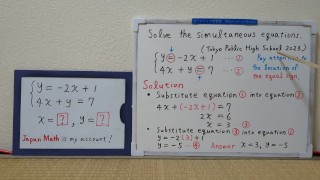 Solve the simultaneous equations.
(Tokyo Public High School 2023.)
y = -2x + 1 ... ①
4x + y = 7 ... ②
Pay attention to
the location of
the equal sign.
Solution
• Substitute equation ① into equation ②
4x + (-2x+1) = 7
2x = 6
x = 3 ③
• Substitute equation ③ into equation ①
y = -2(3)+1
y = -5 ④
Answer x = 3, y = -5
y = -2x + 1
4x + y = 7
x = ?, y = ?
Japan Math is my account!